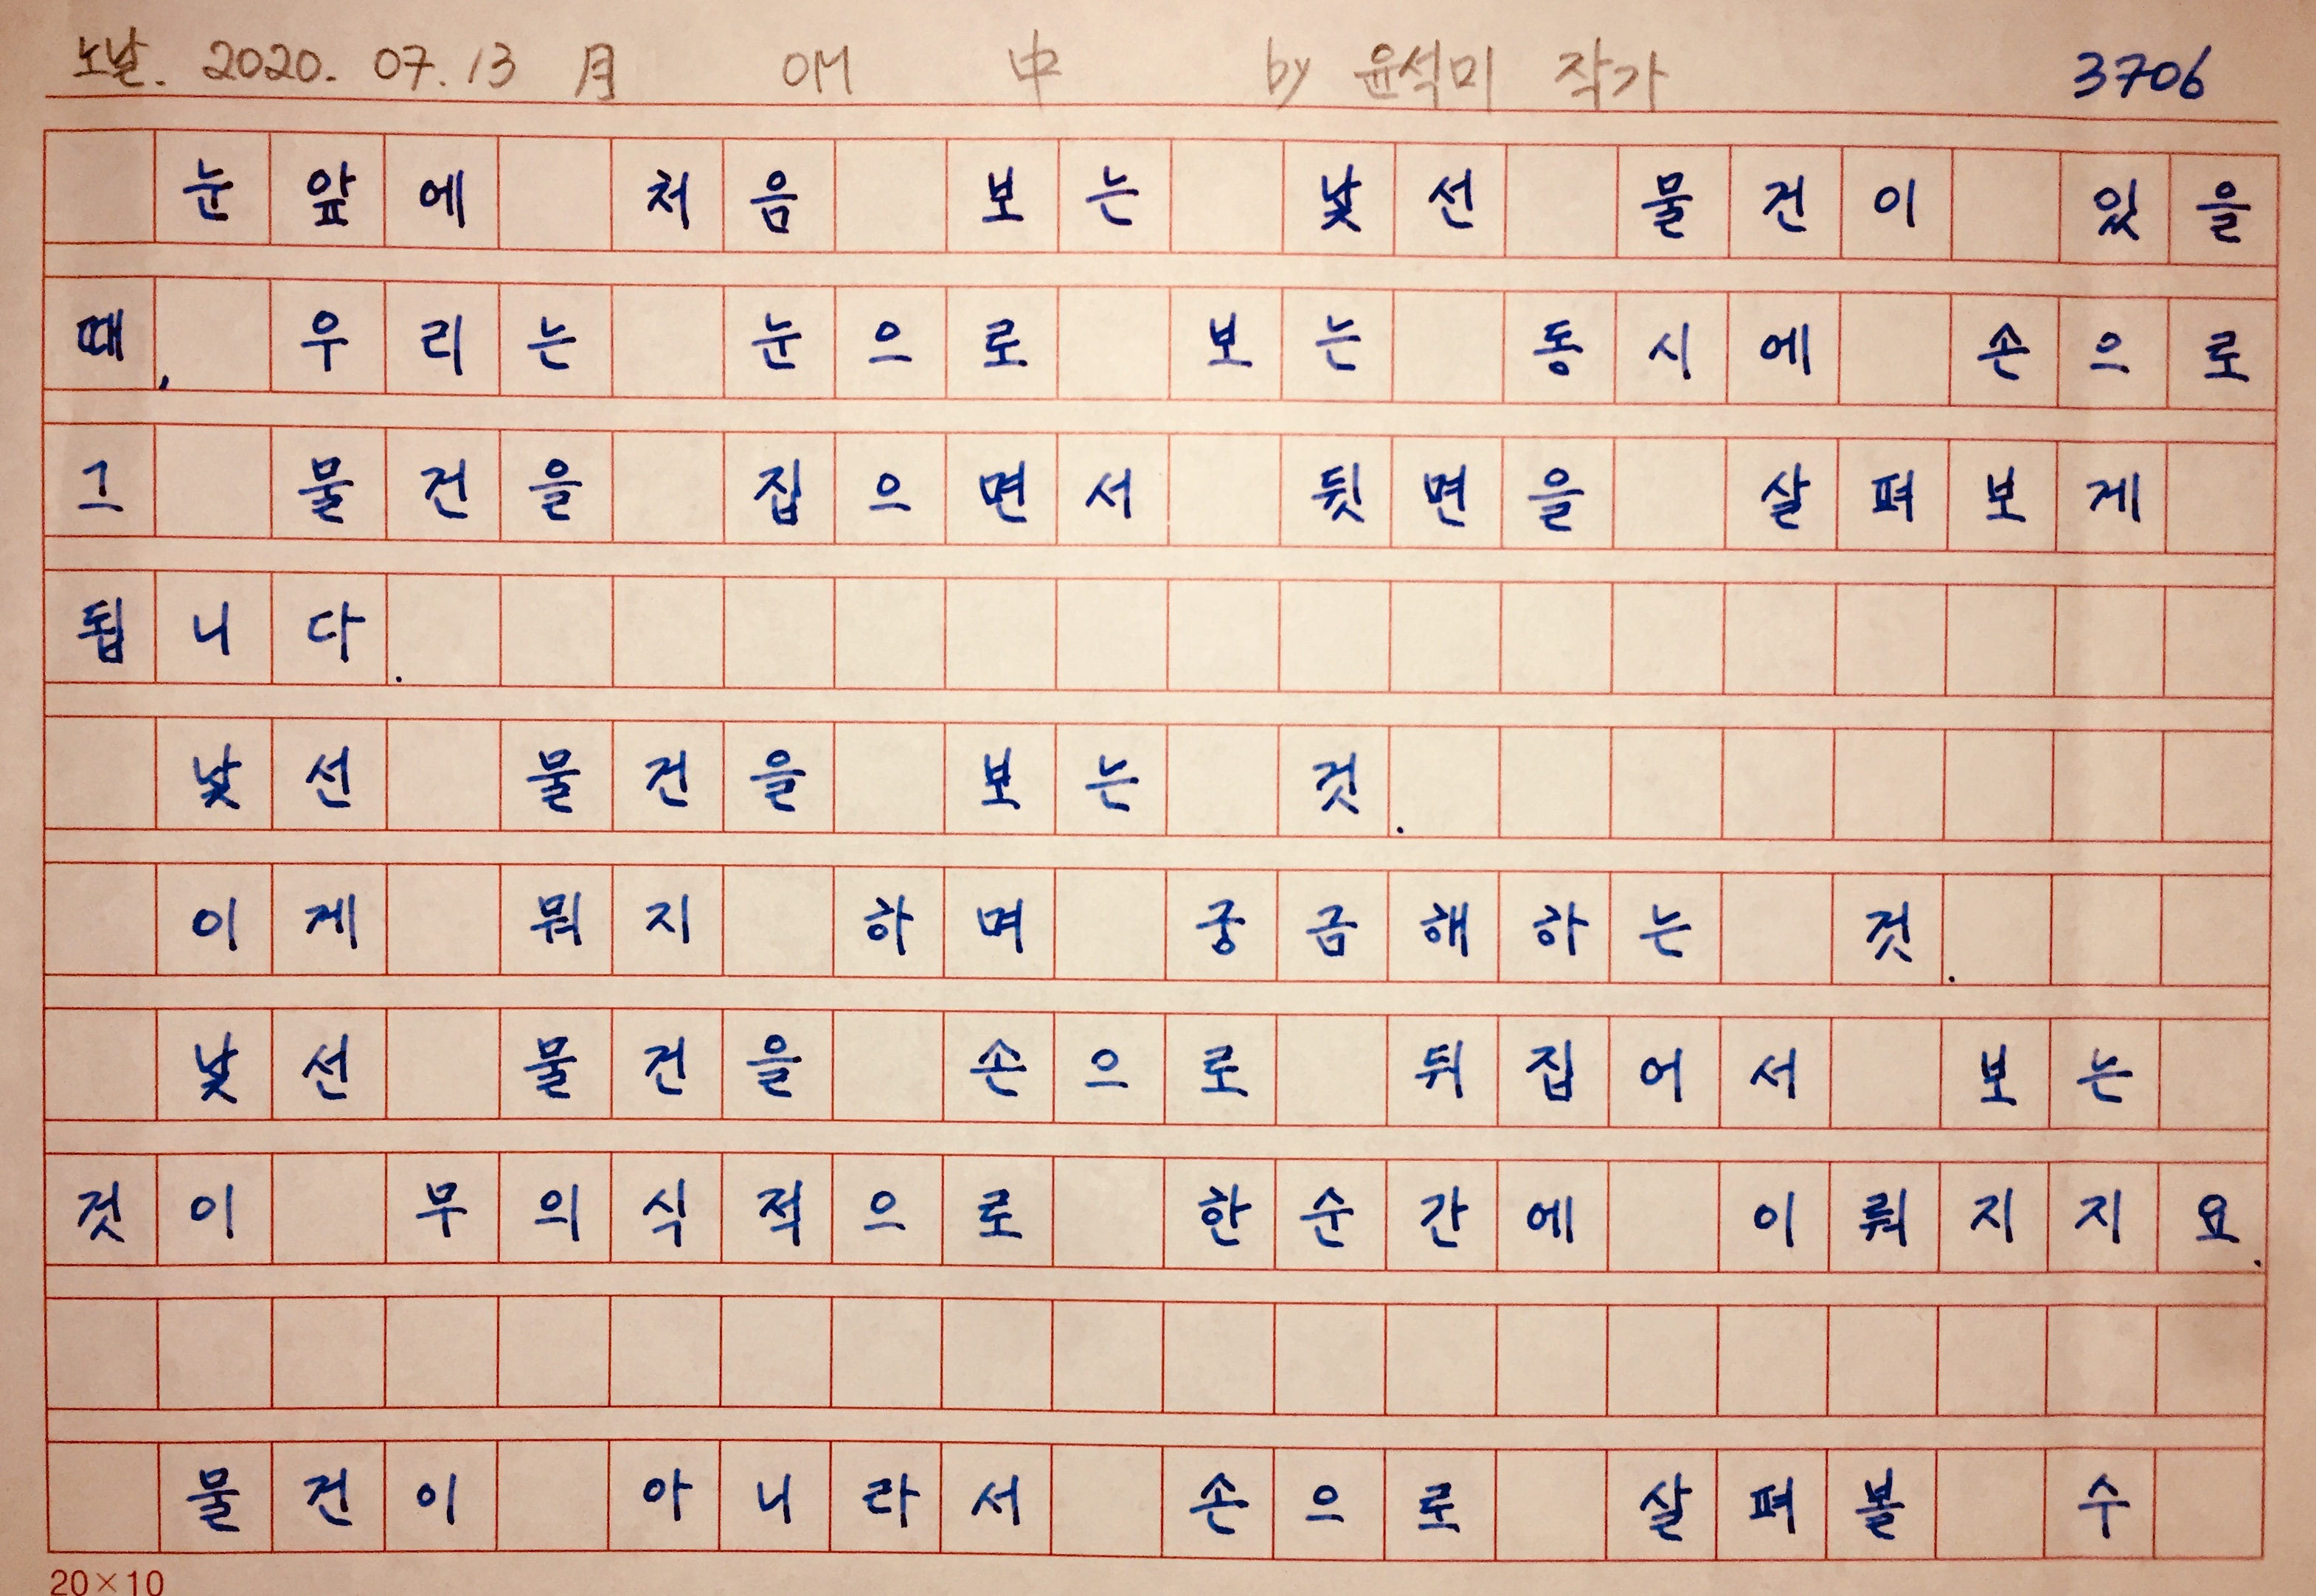 노날. 2020. 07. 13 月 OM 中 by 윤석미 작가 3706
눈앞에 처음 보는 낯선 물건이 있을
때, 우리는 눈으로 보는 동시에 손으로
그 물건을 집으면서 뒷면을 살펴보게
됩니다.
낯선 물건을 보는 것.
이게 뭐지 하며 궁금해하는 것.
낯선 물건을 손으로 뒤집어서 보는
것이 무의식적으로 한순간에 이뤄지지요.
물건이 아니라서 손으로 살펴볼 수
20×10